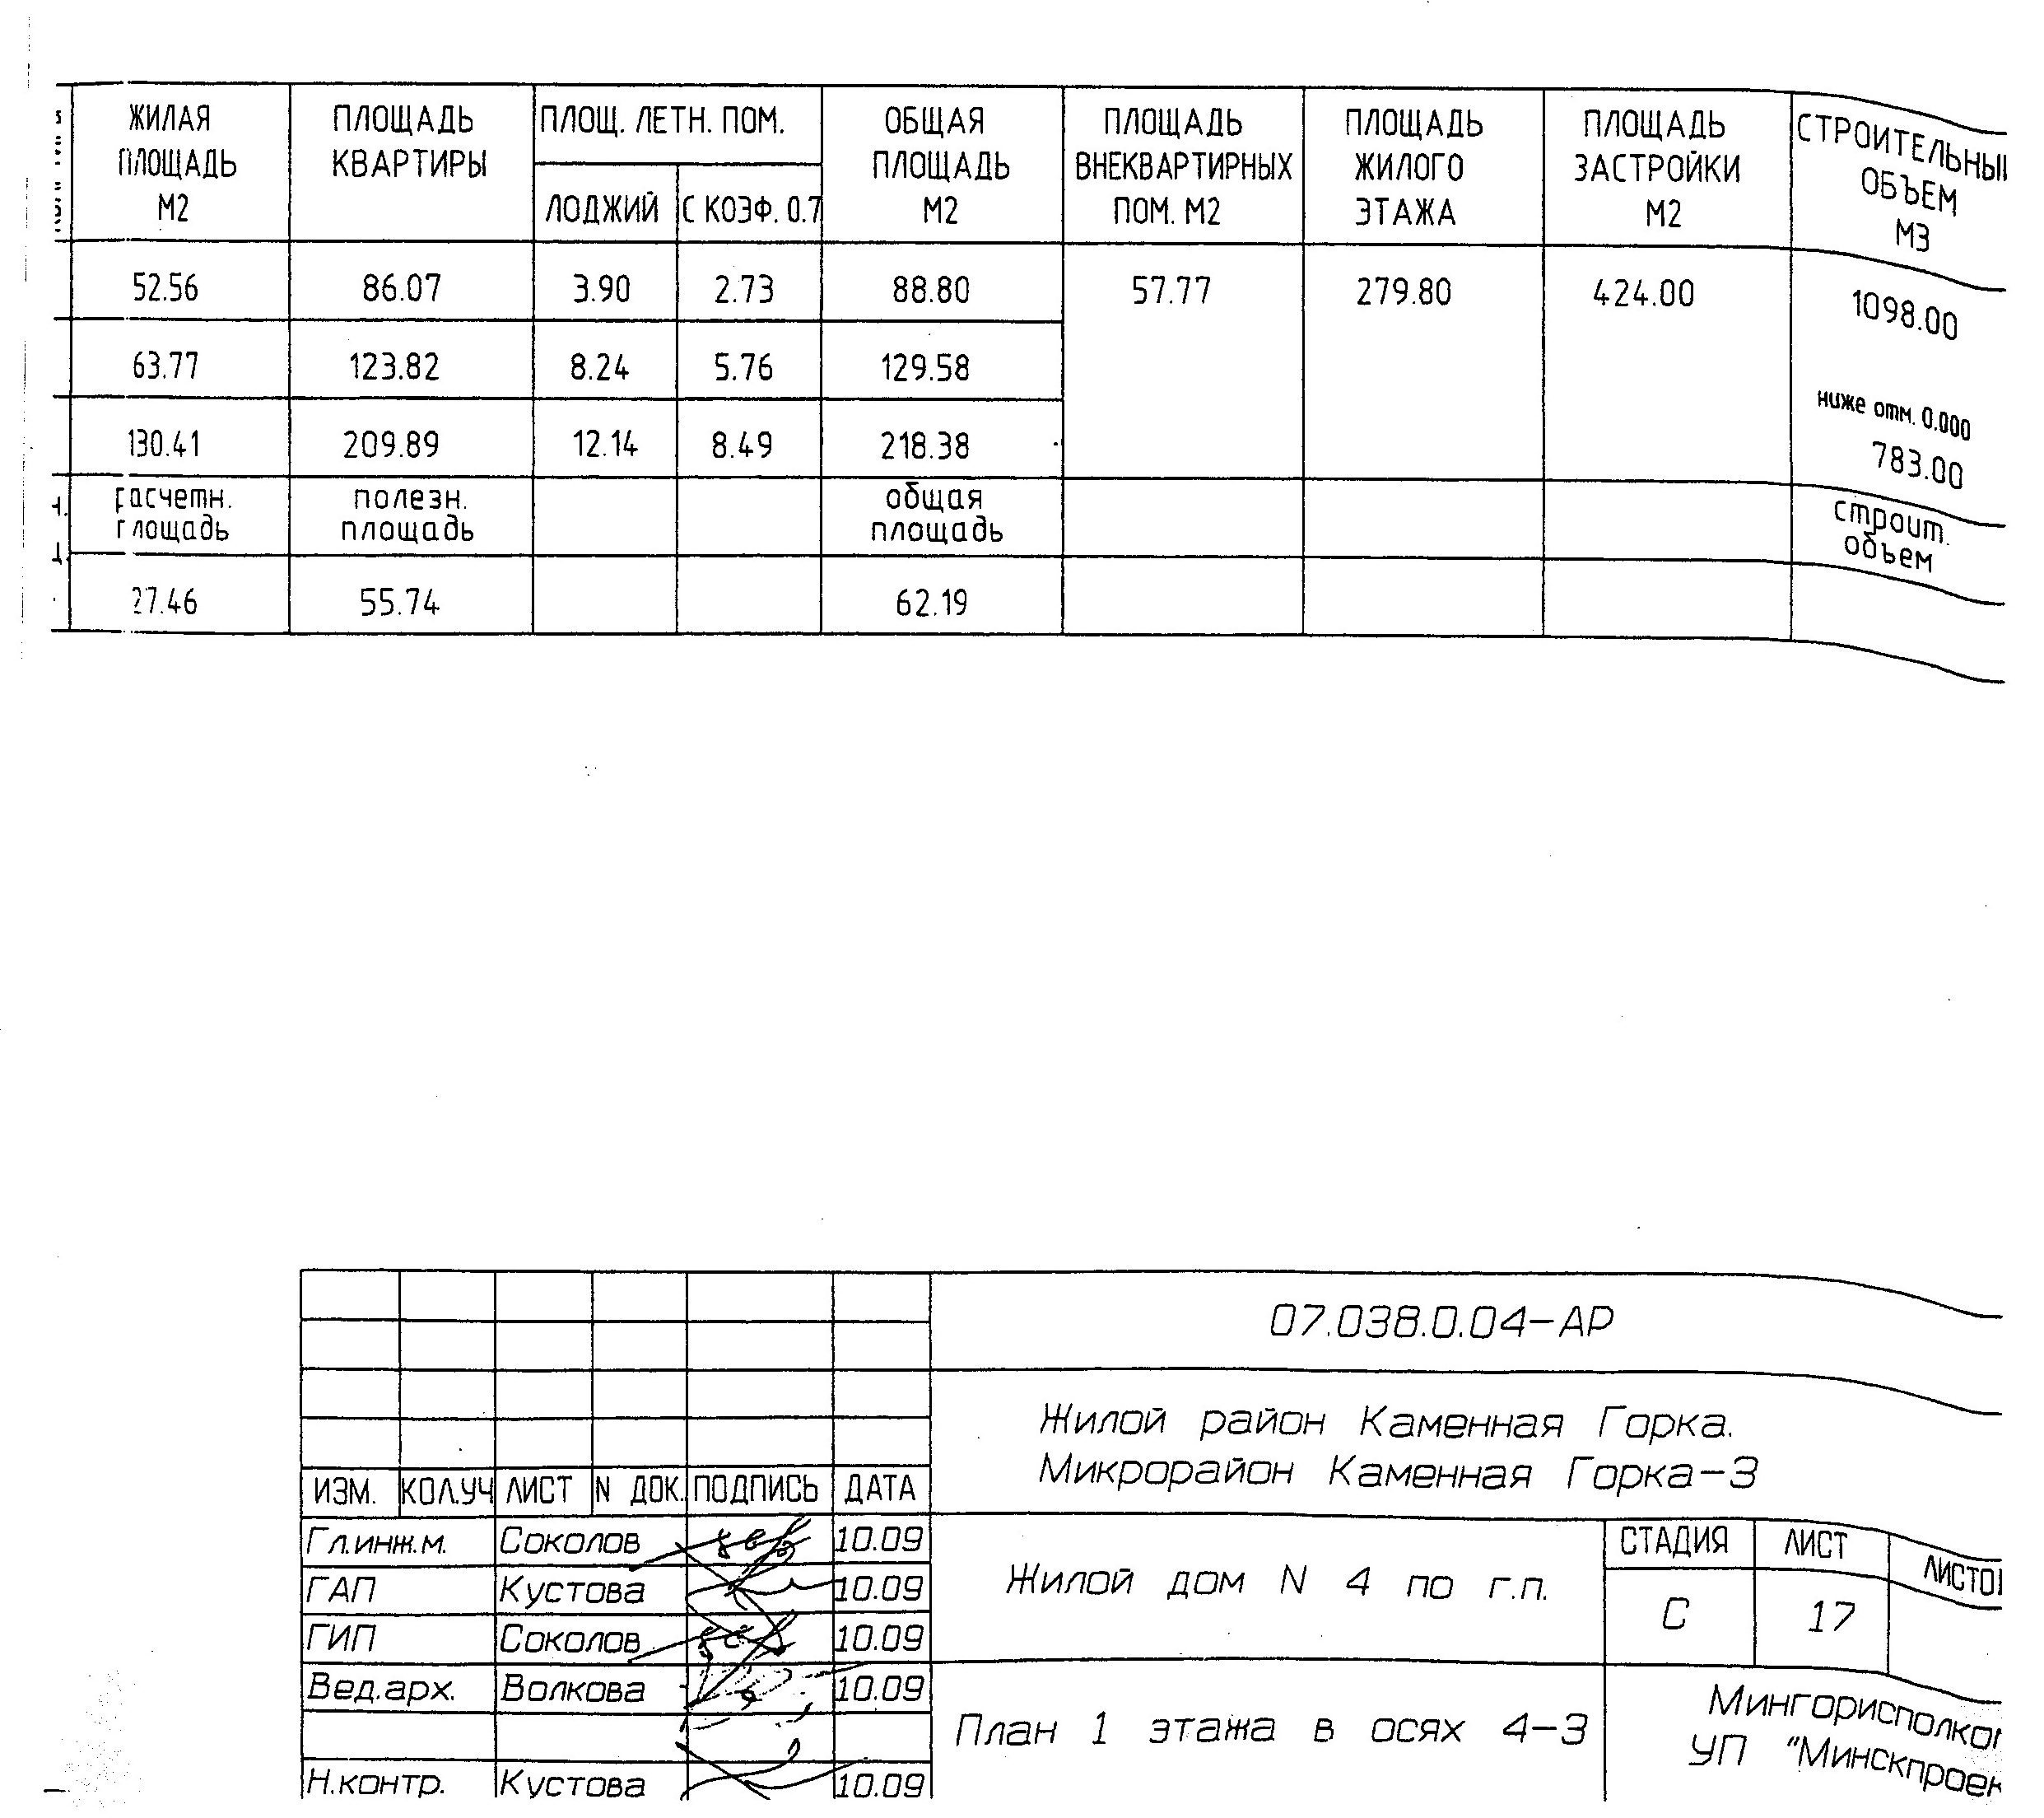 ЖИЛАЯ
ПЛОЩАДЬ
М2
ПЛОЩАДЬ
КВАРТИРЫ
ПЛОЩ. ЛЕТН. ПОМ.
ЛОДЖИЙ
С КОЭФ. 0.7
ОБЩАЯ
ПЛОЩАДЬ
М2
ПЛОЩАДЬ
ВНЕКВАРТИРНЫХ
ПОМ. М2
ПЛОЩАДЬ
ЖИЛОГО
ЭТАЖА
ПЛОЩАДЬ
ЗАСТРОЙКИ
М2
СТРОИТЕЛЬНЫ
ОБЪЕМ
М3
52.56 86.07 3.90 2.73 88.80 57.77 279.80 424.00 1098.00
63.77 123.82 8.24 5.76 129.58
ниже отм. 0.000
130.41 209.89 12.14 8.49 218.38 783.00
расчетн.
площадь
полезн.
площадь
общая
площадь
строит.
объем
27.46 55.74 62.19
07.038.0.04-АР
Жилой район Каменная Горка.
Микрорайон Каменная Горка-3
ИЗМ. КОЛ.УЧ ЛИСТ N ДОК. ПОДПИСЬ ДАТА
Гл.инж.м. Соколов 10.09
ГАП Кустова 10.09
ГИП Соколов 10.09
Вед.арх. Волкова 10.09
Н.контр. Кустова 10.09
Жилой дом N 4 по г.п.
СТАДИЯ ЛИСТ ЛИСТО
С 17
План 1 этажа в осях 4-3
Мингорисполко
УП "Минскпроек